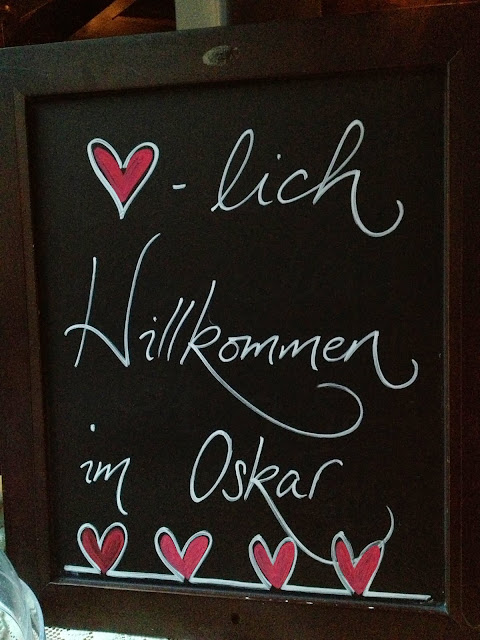 ♥-lich
Willkommen
im Oskar